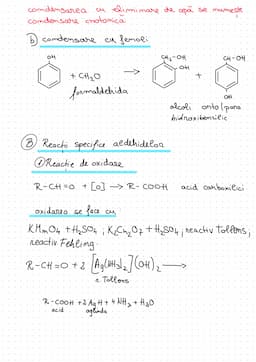 condensarea cu eliminare de apă se numește
condensare crotonică
b) condensare cu fenoli
OH
+ CH₂O
formaldehida
→
CH₂-OH
OH
+
CH-OH
OH
alcoli orto/para
hidroxibenzilic
B Reacții specifice aldehidelor
① Reacție de oxidare
R-CH=O + [O] → R-COOH acid carboxilici
oxidarea se face cu
KMnO₄ + H₂SO₄ ; K₂Cr₂O₇ + H₂SO₄, reactiv Tollens,
reactiv Fehling.
R-CH=O + 2 [Ag(NH₃)₂](OH)₂ →
r. Tollens
R-COOH + 2Ag + 4NH₃ + H₂O
acid oglinda